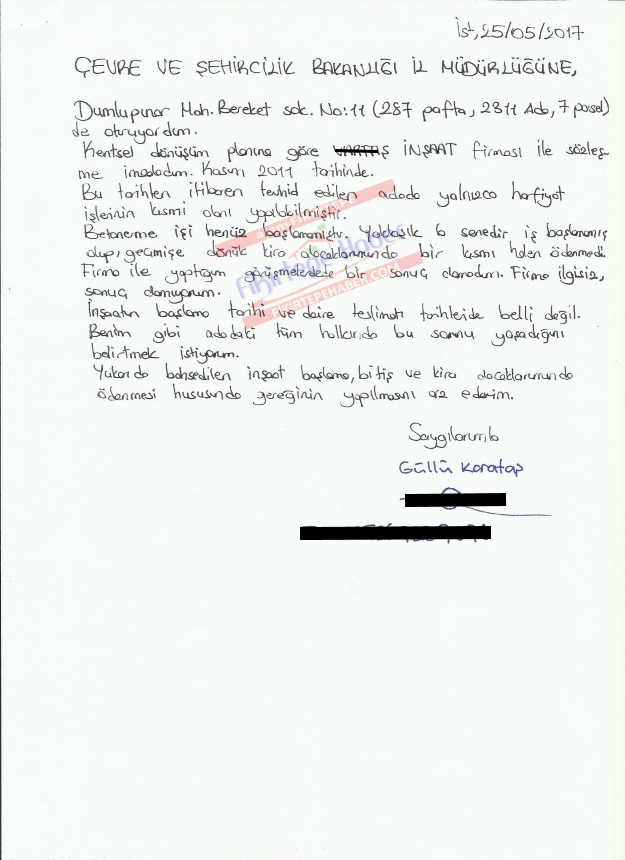 İst, 25/05/2017
ÇEVRE VE ŞEHİRCİLİK BAKANLIĞI İL MÜDÜRLÜĞÜNE,
Dumlupınar Mah. Bereket sok. No:11 (287 pafta, 2311 Ada, 7 parsel)
de oturuyordum.
Kentsel dönüşüm planına göre İNŞAAT firması ile sözleş
me imzaladım. Kasım 2011 tarihinde.
Bu tarihten itibaren tevhid edilen adada yalnızca harfiyat
işleinin kısmi olanı yapılabilmiştir.
Betonerme işi henüz başlanamıştır. Yaklaşık 6 senedir iş başlanamış
olup, geçmişe dönük kira alacaklarımında bir kısmı ödenmedi.
Firma ile yaptığım görüşmelerdede bir sonuç alamadım. Firma ilgisiz,
sonuç alamıyorum.
İnşaatın başlama tarihi ve daire teslimatı tarihleide belli değil.
Benim gibi adadaki tüm halkında bu sorunu yaşadığını
belirtmek istiyorum.
Yukarıda bahsedilen inşaat başlama, bitiş ve kira alacaklarımında
ödenmesi hususunda gereğinin yapılmasını arz ederim.
Saygılarımla
Güllü Karataş
Fikirtepe Haber
FIKIRTEPEHABER.COM